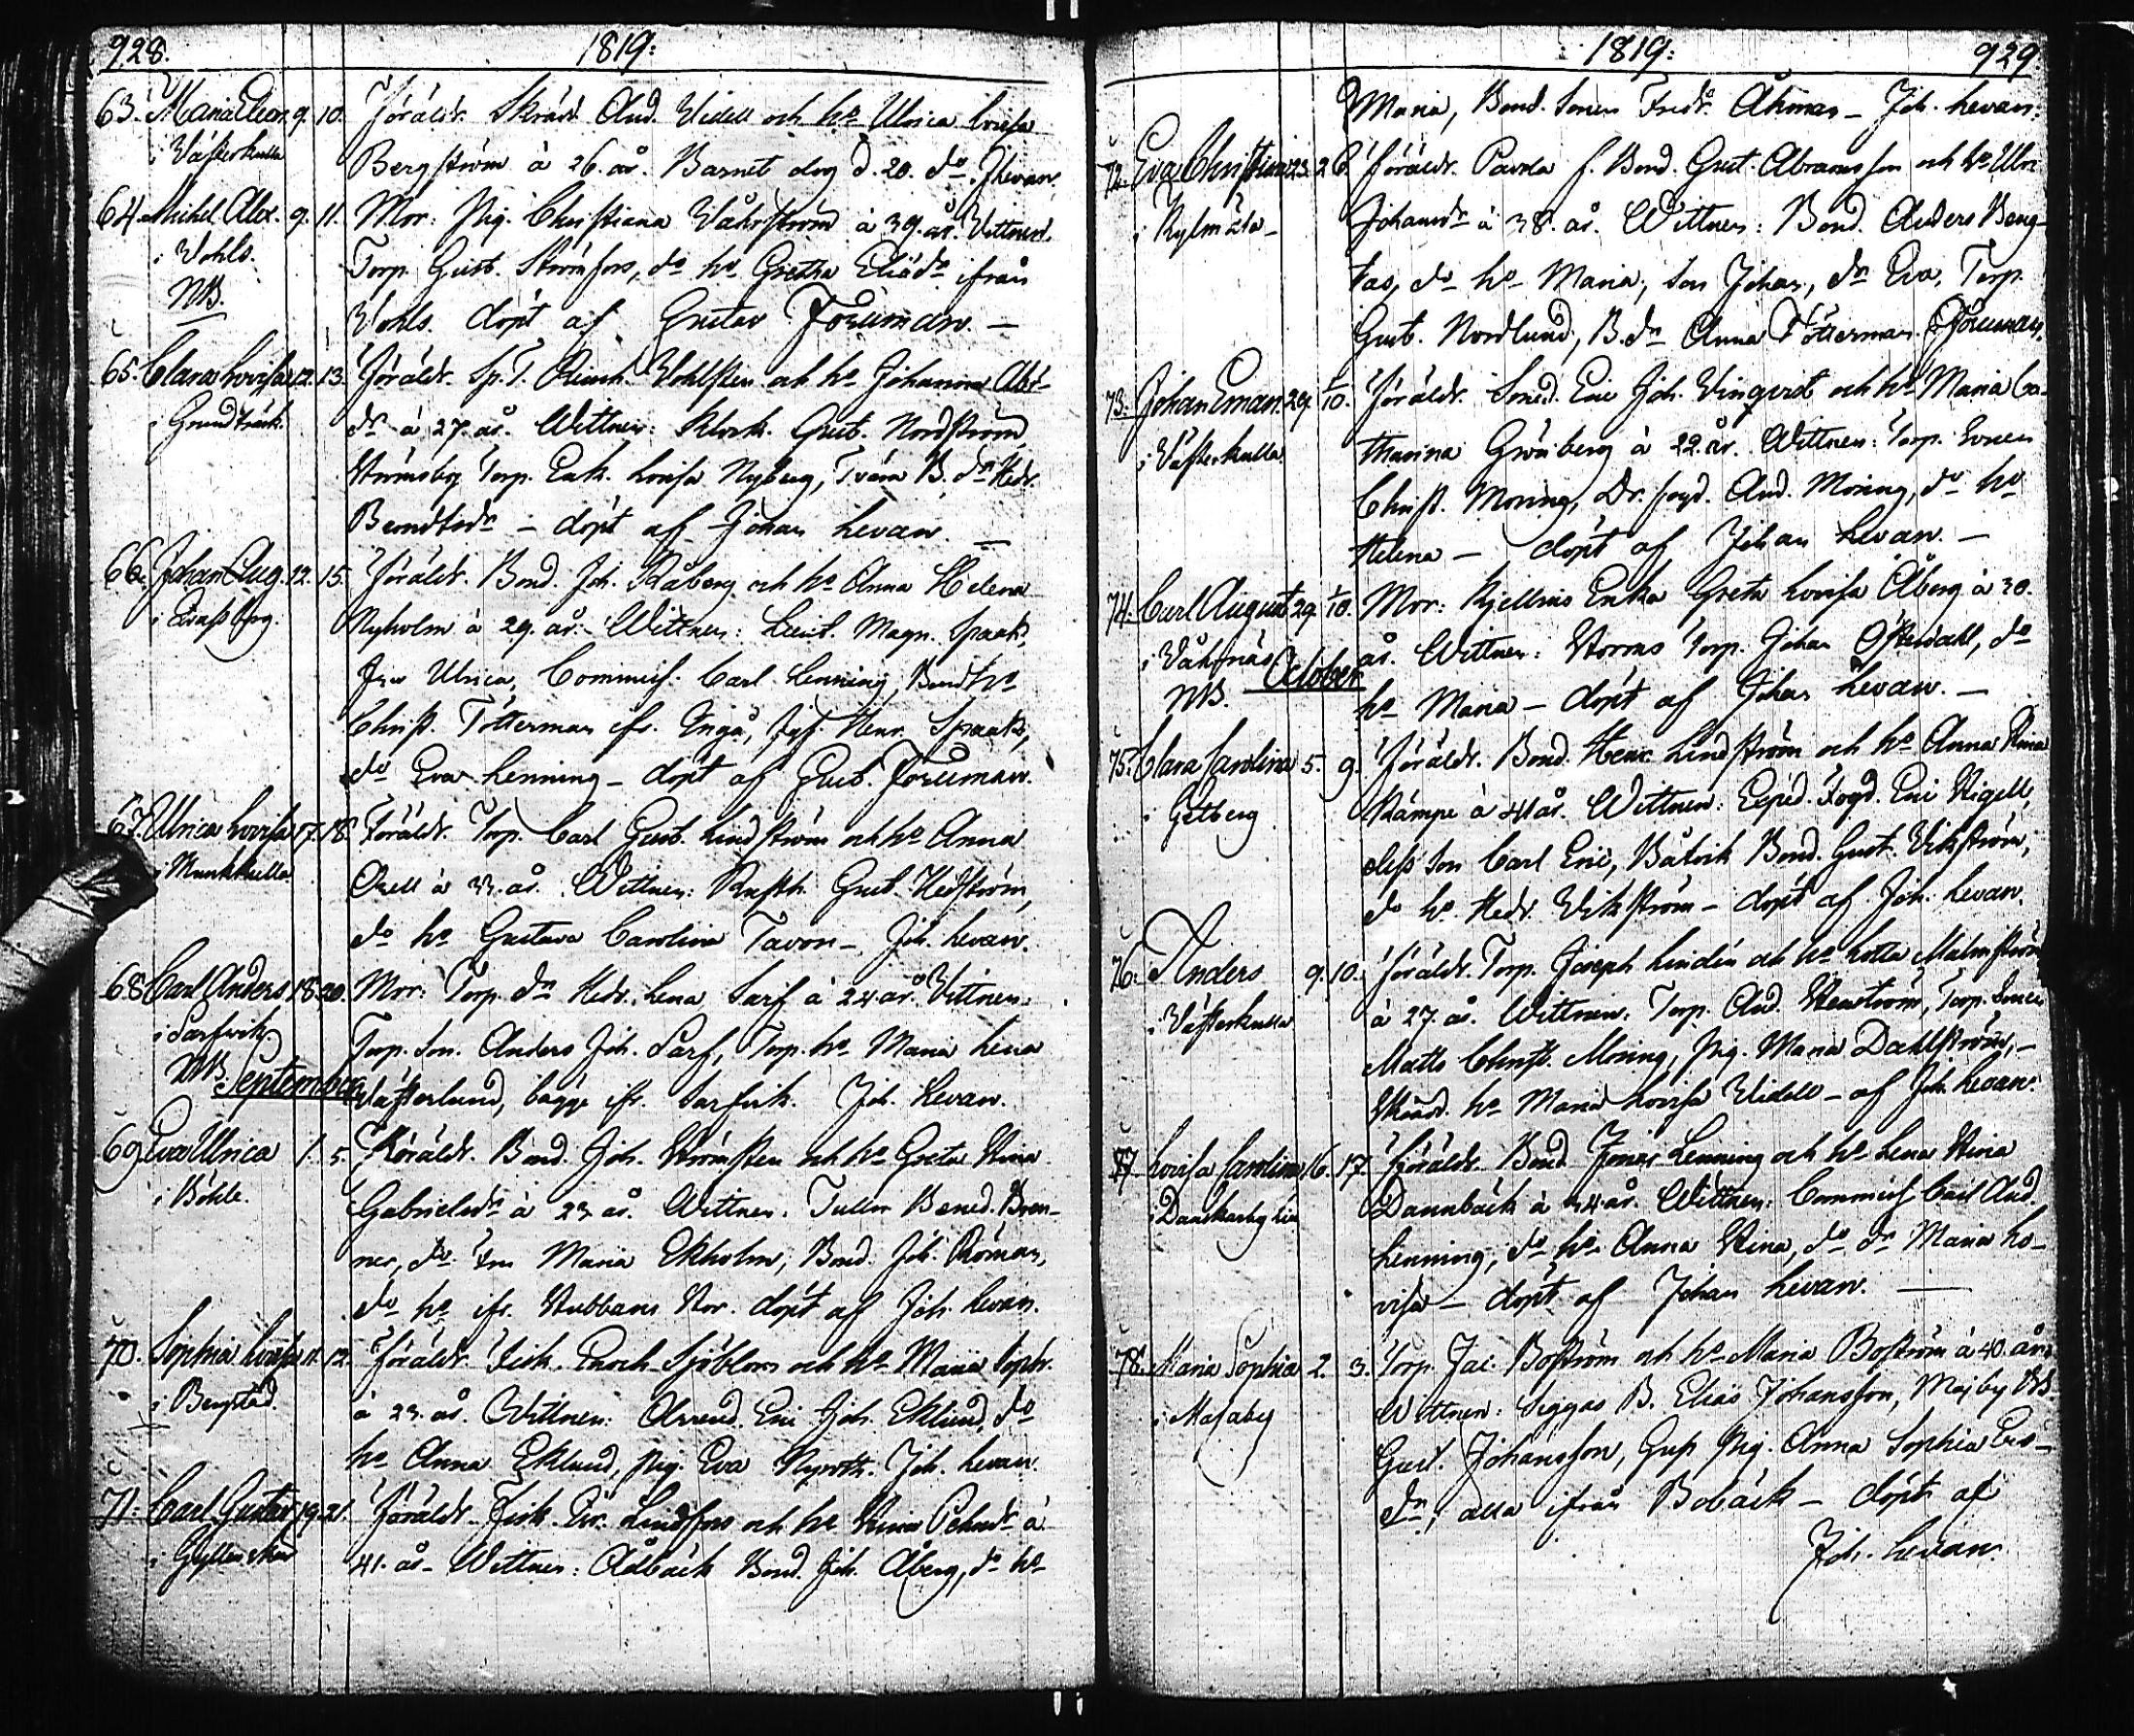 928.
1819:
63. Maria Eleon. 9. 10. Föräldr. Skrädd. And. Videll och h:o Ulrica Lovisa
i Västerkulla Bergström à 26. år. Barnet dog d. 20. d:o J Levan.
64. Michel Alex. 9. 11. Mor: Pig. Christiana à 39. år. Vittnen.
i Vohls. Torp. Gust. Strömfors, d:o h:o Gretha ifrån
NB. Vohls. döpt af Gustav Foruman. —
65. Clara Lovisa 12. 13. Föräldr. Sp. T. Vohlsten och h:o Johanna Abr-
i Grundträsk. d:r à 27. år. Wittnen: Klock. Gust. Nordström,
Strömsby Torp. Enk. Lovisa Nyberg, B. d:r Hedv.
d:r – döpt af Johan Levan. —
66. Johan Aug. 12. 15. Föräldr. Bond. Joh. Råberg och h:o Anna Helena
Nyholm à 29. år. Wittnen: Lieut. Magn. Spaak,
Fru Ulrica, Commiss. Carl Lenning, Bond h:o
Christ. Tötterman ifr. Ingå, Henr. Spaak,
d:o Eva Lenning – döpt af Gust. Foruman.
67. Ulrica Lovisa 17. 18. Föräldr. Torp. Carl Gust. Lindström och h:o Anna
i Munkkulla à 33. år. Wittnen: Gust. Hedström,
d:o h:o Gustava Carolina Tavon – Joh. Levan.
68. Carl Anders 18. 20. Mor: Torp. d:r Hedv. Lena Sarf à 24. år. Vittnen:
i Sarfvik. Torp. Son. Anders Joh. Sarf, Torp. h:o Maria Lena
NB. September Västerlund, bägge ifr. Sarfvik. Joh. Levan.
69. Eva Ulrica 1. 5. Föräldr. Bond. Joh. Strömsten och h:o Greta Stina
i Böhle. Gabrielsd:r à 23 år. Wittnen. Bened. Bren-
ner, d:o Maria Ekholm, Bond. Joh. Röman,
d:o h:o ifr. Stubbans Nor. döpt af Joh. Levan.
70. Sophia Lovisa 11. 12. Föräldr. Fisk. Enoch Sjöblom och h:o Maria Soph.
i Bengstad. à 23. år. Wittnen: Arrend. Eric Joh. Eklund, d:o
h:o Anna Eklund, pig. Eva Nyroth. Joh. Levan.
71. Carl Gustav 19. 21. Föräldr. Fisk. Lindfors och h:o Stina à
i 41. år – Wittnen: Adbäck Bond. Joh. Åberg, d:o h:o
1819:
929
Maria, Bond. Sonen Fredr. Åhman – Joh. Levan.
72. Eva Christina 23. 26. Föräldr. f. Bond. Gust. Abramsson och h:o Ulr.
i Kylmälä – Johansd:r à 38. år. Wittnen: Bond. Anders Beng-
tas, d:o h:o Maria, Son Johan, d:r Eva, Torp.
Gust. Nordlund, B. d:r Anna Tötterman. Foruman.
73. Johan Eman. 29. 1/10. Föräldr. Smed. Eric Joh. Vinqvist och h:o Maria Ca-
i Västerkulla. tharina Grönberg à 22. år. Wittnen: Torp. Sonen
Christ. Moring, And. Moring, d:o h:o
Helena – döpt af Johan Levan. —
74. Carl August 29. 1/10. Mor: Enka Greta Lovisa Åberg à 30.
i Våhlnäs år. Wittnen: Torp. Johan Österdahl, d:o
NB. October h:o Maria – döpt af Johan Levan. —
75. Clara Carolina 5. 9. Föräldr. Bond. Henr. Lindström och h:o Anna Stina
i Getberg Kämpe à 41 år. Wittnen: Exped. Fogd. Eric Stigell,
dess Son Carl Eric, Båtvik Bond. Gust. Vikström,
d:o h:o Hedv. Vikström – döpt af Joh. Levan.
76. Anders 9. 10. Föräldr. Torp. Joseph Lindén och h:o Lotta Malmström
i Västerkulla à 27. år. Wittnen. Torp. And. Stenström, Torp. Sonen
Matts Christ. Moring, Pig. Maria Dahlström, –
Skrädd. h:o Maria Lovisa Videll – af Joh. Levan.
77. Lovisa Carolina 16. 17. Föräldr. Bond. Jonas Lenning och h:o Lena Stina
i Danskarby Dannbäck à 24 år. Wittnen: Commiss. Carl And.
Lenning, d:o h:o Anna Stina, d:o d:r Maria Lo-
visa – döpt af Johan Levan. —
78. Maria Sophia 2. 3. Torp. Jac. Boström och h:o Maria Boström à 40. år.
i Masaby Wittnen: Siggas B. Elias Johansson, Majby
Gust. Johansson, Pig. Anna Sophia Eric-
d:r, alla ifrån Bobäck – döpt af
Joh. Levan.